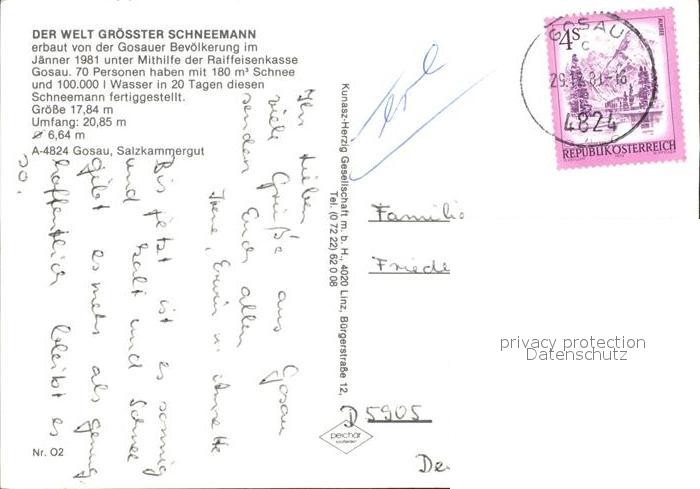 DER WELT GRÖSSTER SCHNEEMANN
erbaut von der Gosauer Bevölkerung im
Jänner 1981 unter Mithilfe der Raiffeisenkasse
Gosau. 70 Personen haben mit 180 m³ Schnee
und 100.000 l Wasser in 20 Tagen diesen
Schneemann fertiggestellt.
Größe 17,84 m
Umfang: 20,85 m
⌀ 6,64 m
A-4824 Gosau, Salzkammergut
Ihr Lieben,
viele Grüße aus Gosau
senden Euch allen
Irene, Erwin u. Annette
Bis jetzt ist es sonnig
und kalt und Schnee
gibt es mehr als genug.
hoffentlich bleibt es
so.
Nr. 02
Kunasz-Herzig Gesellschaft m. b. H., 4020 Linz, Bürgerstraße 12,
Tel. (0 72 22) 62 0 08
peichär
GOSAU
C
4824
4S
ALMSEE
REPUBLIK ÖSTERREICH
Familie
Friede
D 5905
De
privacy protection
Datenschutz